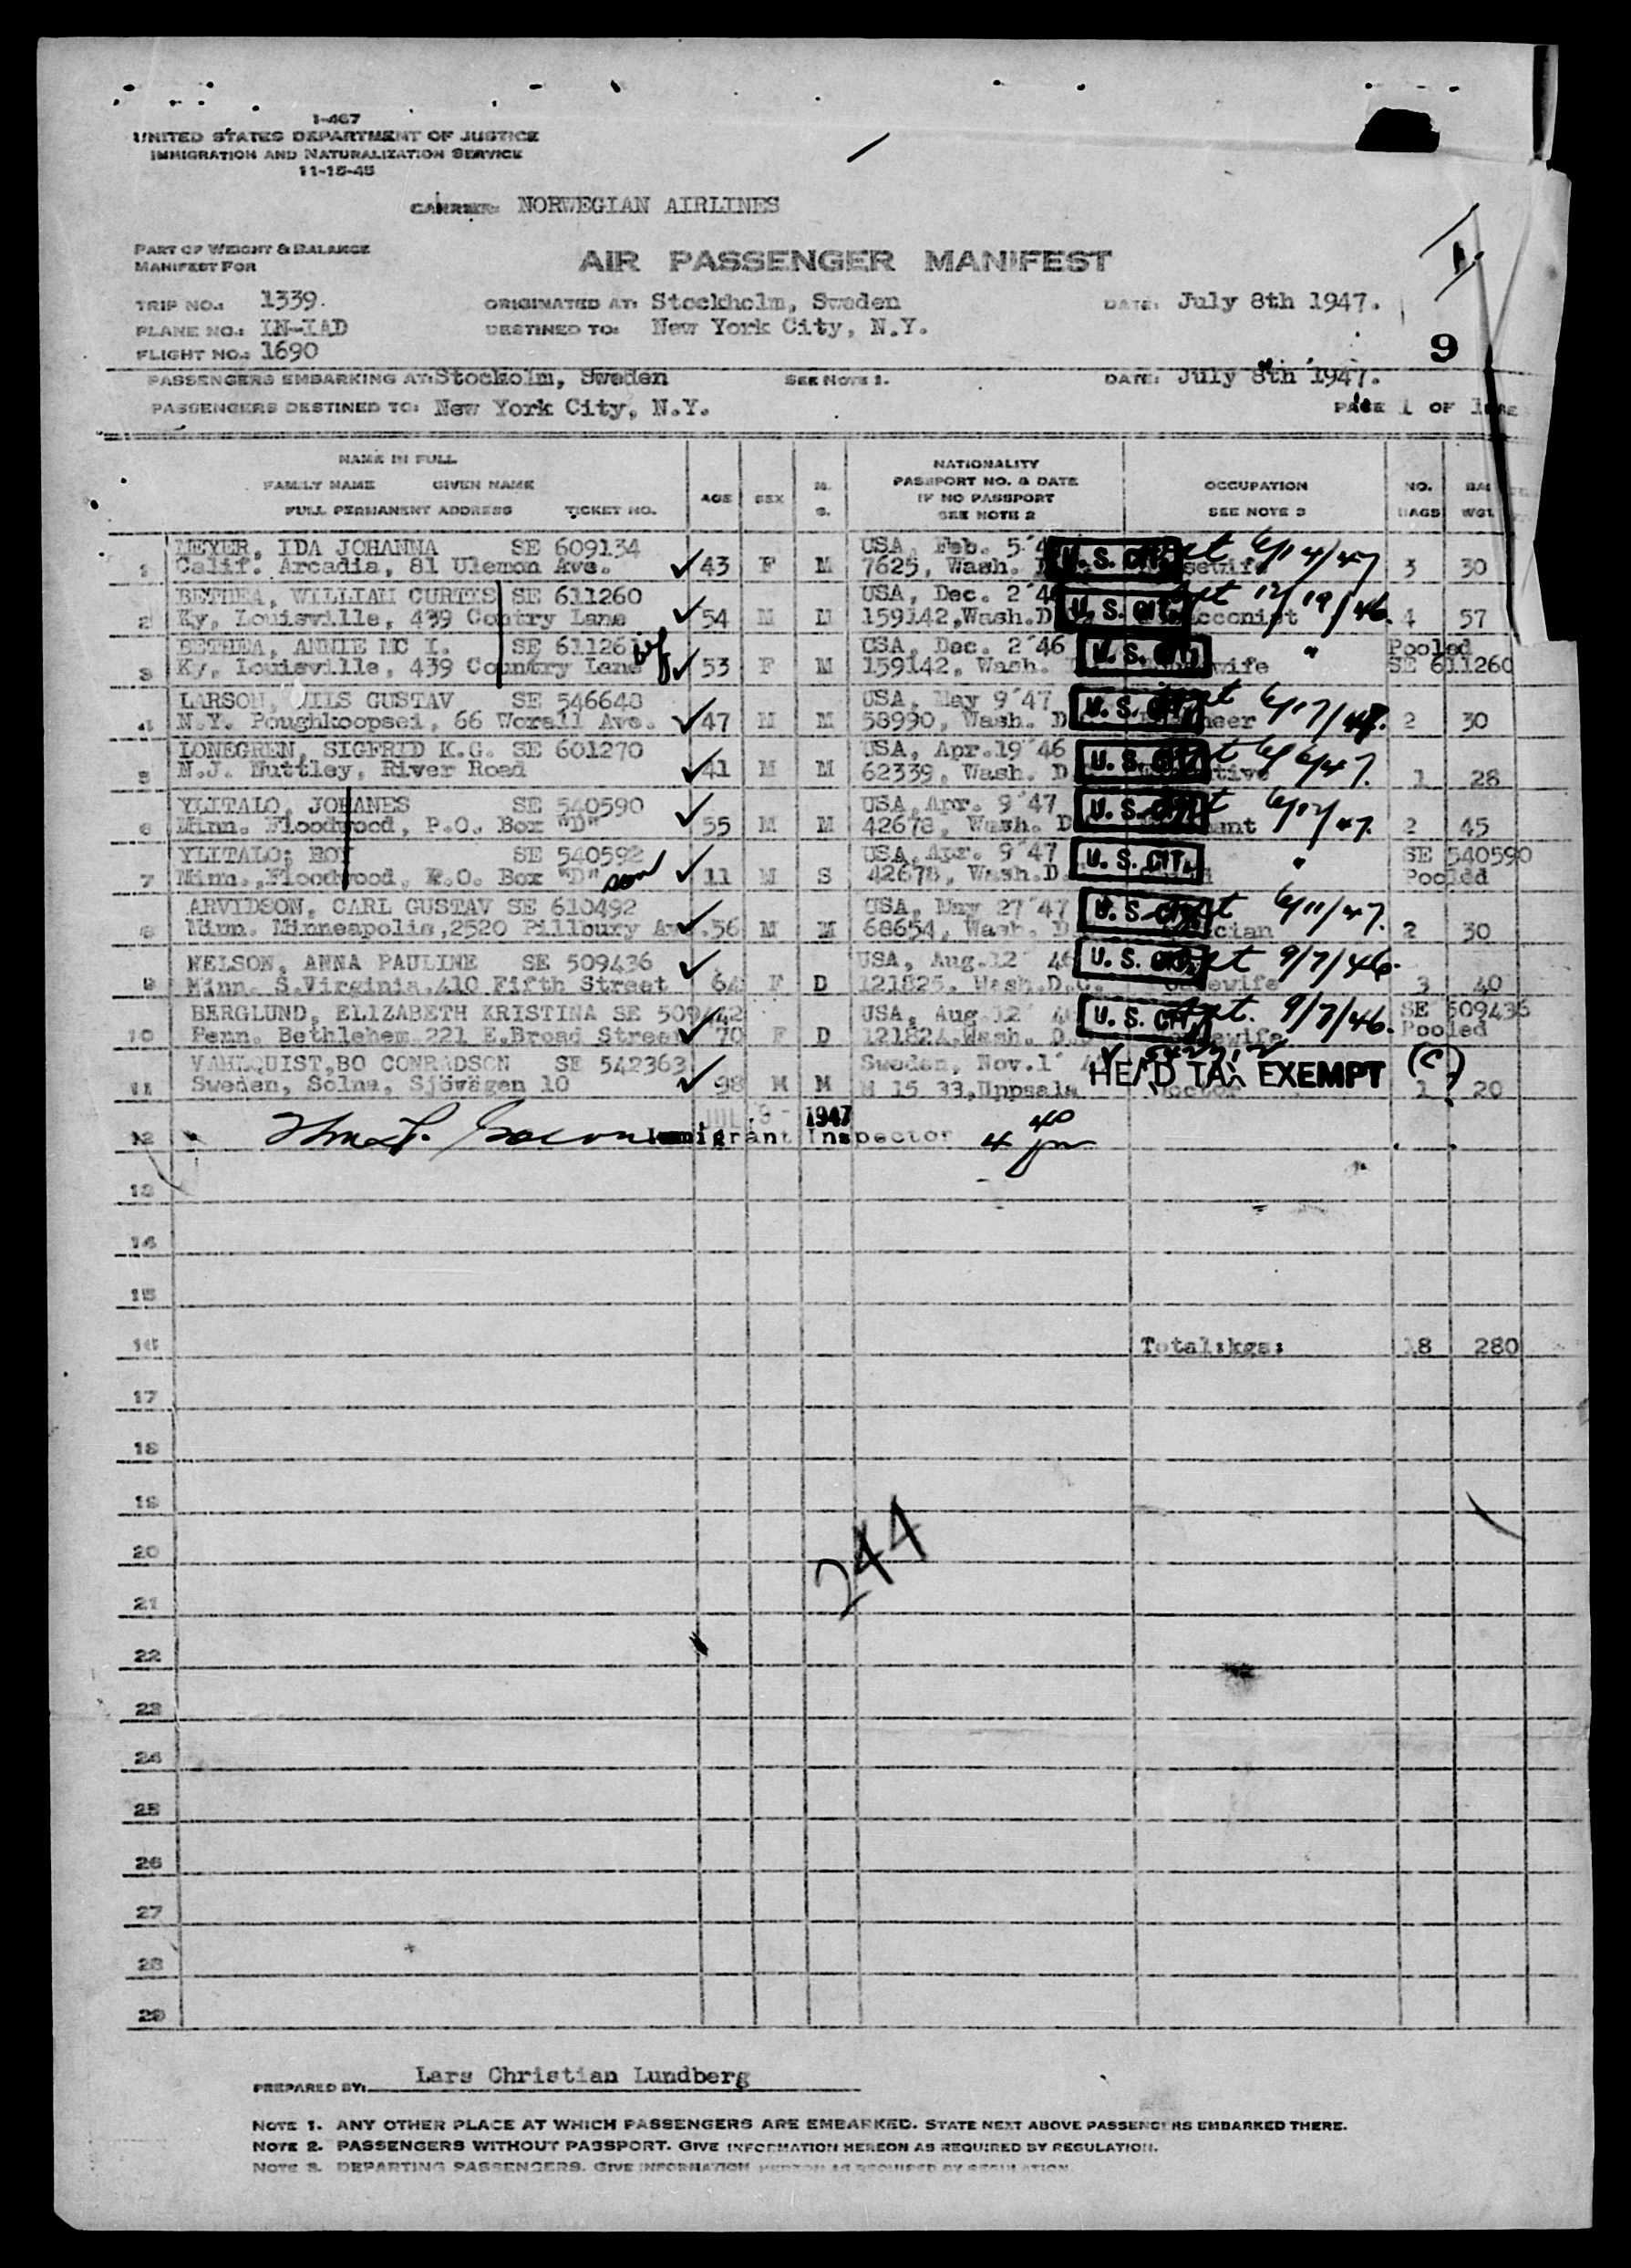 I-467
UNITED STATES DEPARTMENT OF JUSTICE
IMMIGRATION AND NATURALIZATION SERVICE
11-15-45
CARRIER: NORWEGIAN AIRLINES
PART OF WEIGHT & BALANCE
MANIFEST FOR
AIR PASSENGER MANIFEST
TRIP NO.: 1339. ORIGINATED AT: Stockholm, Sweden DATE: July 8th 1947.
PLANE NO.: LN-IAD DESTINED TO: New York City, N.Y.
FLIGHT NO.: 1690
9
PASSENGERS EMBARKING AT: Stockolm, Sweden SEE NOTE 1. DATE: July 8th 1947.
PASSENGERS DESTINED TO: New York City, N.Y. PAGE 1 OF 1
NAME IN FULL
FAMILY NAME GIVEN NAME
FULL PERMANENT ADDRESS TICKET NO.
AGE SEX M. S.
NATIONALITY
PASSPORT NO. & DATE
IF NO PASSPORT
SEE NOTE 2
OCCUPATION
SEE NOTE 3
NO. BAGS
WGT.
1 MEYER, IDA JOHANNA SE 609134 USA, Feb. 5'4 U.S. CIT. 6/14/47
Calif. Arcadia, 81 Ulemon Ave. 43 F M 7625, Wash. 3 30
2 BETHEA, WILLIAM CURTIS SE 611260 USA, Dec. 2'46 U.S. CIT. 12/19/46.
Ky, Louisville, 439 Contry Lane 54 M M 159142, Wash.D 4 57
3 BETHEA, ANNIE MC I. SE 61126 wif USA, Dec. 2'46 U.S. CIT. " Pooled
Ky, Louisville, 439 Country Lane 53 F M 159142, Wash. wife SE 611260
4 LARSON, NILS GUSTAV SE 546648 USA, May 9'47 U.S. CIT. 6/17/47.
N.Y. Poughkoopsei, 66 Worall Ave. 47 M M 58990, Wash. D 2 30
5 LONEGREN, SIGFRID K.G. SE 601270 USA, Apr.19'46 U.S. CIT.
N.J. Nuttley, River Road 41 M M 62339, Wash. D 1 28
6 YLITALO, JOHANES SE 540590 USA, Apr. 9'47 U.S. CIT. 6/12/47.
Minn. Floodwood, P.O. Box "D" 55 M M 42678, Wash. D 2 45
7 YLITALO; ROY SE 540592 son USA, Apr. 9'47 U.S. CIT. " SE 540590
Minn., Floodwood, P.O. Box "D" 11 M S 42678, Wash.D. Pooled
8 ARVIDSON, CARL GUSTAV SE 610492 USA, May 27'47 U.S. CIT. 6/11/47.
Minn. Minneapolis, 2520 Pillbury Ave. 56 M M 68654, Wash. D 2 30
9 NELSON, ANNA PAULINE SE 509436 USA, Aug.12'46 U.S. CIT. 9/7/46.
Minn. S.Virginia.410 Fifth Street 64 F D 121825, Wash.D.C. 3 40
10 BERGLUND, ELIZABETH KRISTINA SE 509442 USA, Aug.12'46 U.S. CIT. 9/7/46. SE 509436
Penn. Bethlehem 221 E.Broad Street 70 F D 121824, Wash. D.C Pooled
11 VAHLQUIST, BO CONRADSON SE 542363 Sweden, Nov.1' HEAD TAX EXEMPT (C)
Sweden, Solna, Sjövägen 10 98 M M M 15 33, Uppsala Doctor 1 20
JUL 9 - 1947
12 Immigrant Inspector 4 40 pm
13
14
15
16 Total:kgs: 18 280
17
18
19
20
244
21
22
23
24
25
26
27
28
29
PREPARED BY: Lars Christian Lundberg
NOTE 1. ANY OTHER PLACE AT WHICH PASSENGERS ARE EMBARKED. STATE NEXT ABOVE PASSENGERS EMBARKED THERE.
NOTE 2. PASSENGERS WITHOUT PASSPORT. GIVE INFORMATION HEREON AS REQUIRED BY REGULATION.
NOTE 3. DEPARTING PASSENGERS. GIVE INFORMATION HEREON AS REQUIRED BY REGULATION.